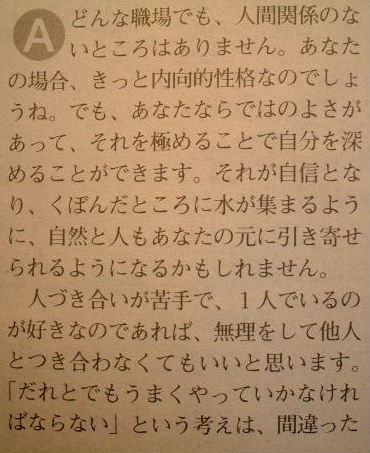 A
どんな職場でも、人間関係のな
いところはありません。あなた
の場合、きっと内向的性格なのでしょ
うね。でも、あなたならではのよさが
あって、それを極めることで自分を深
めることができます。それが自信とな
り、くぼんだところに水が集まるよう
に、自然と人もあなたの元に引き寄せ
られるようになるかもしれません。
人づき合いが苦手で、1人でいるの
が好きなのであれば、無理をして他人
とつき合わなくてもいいと思います。
「だれとでもうまくやっていかなけれ
ばならない」という考えは、間違った